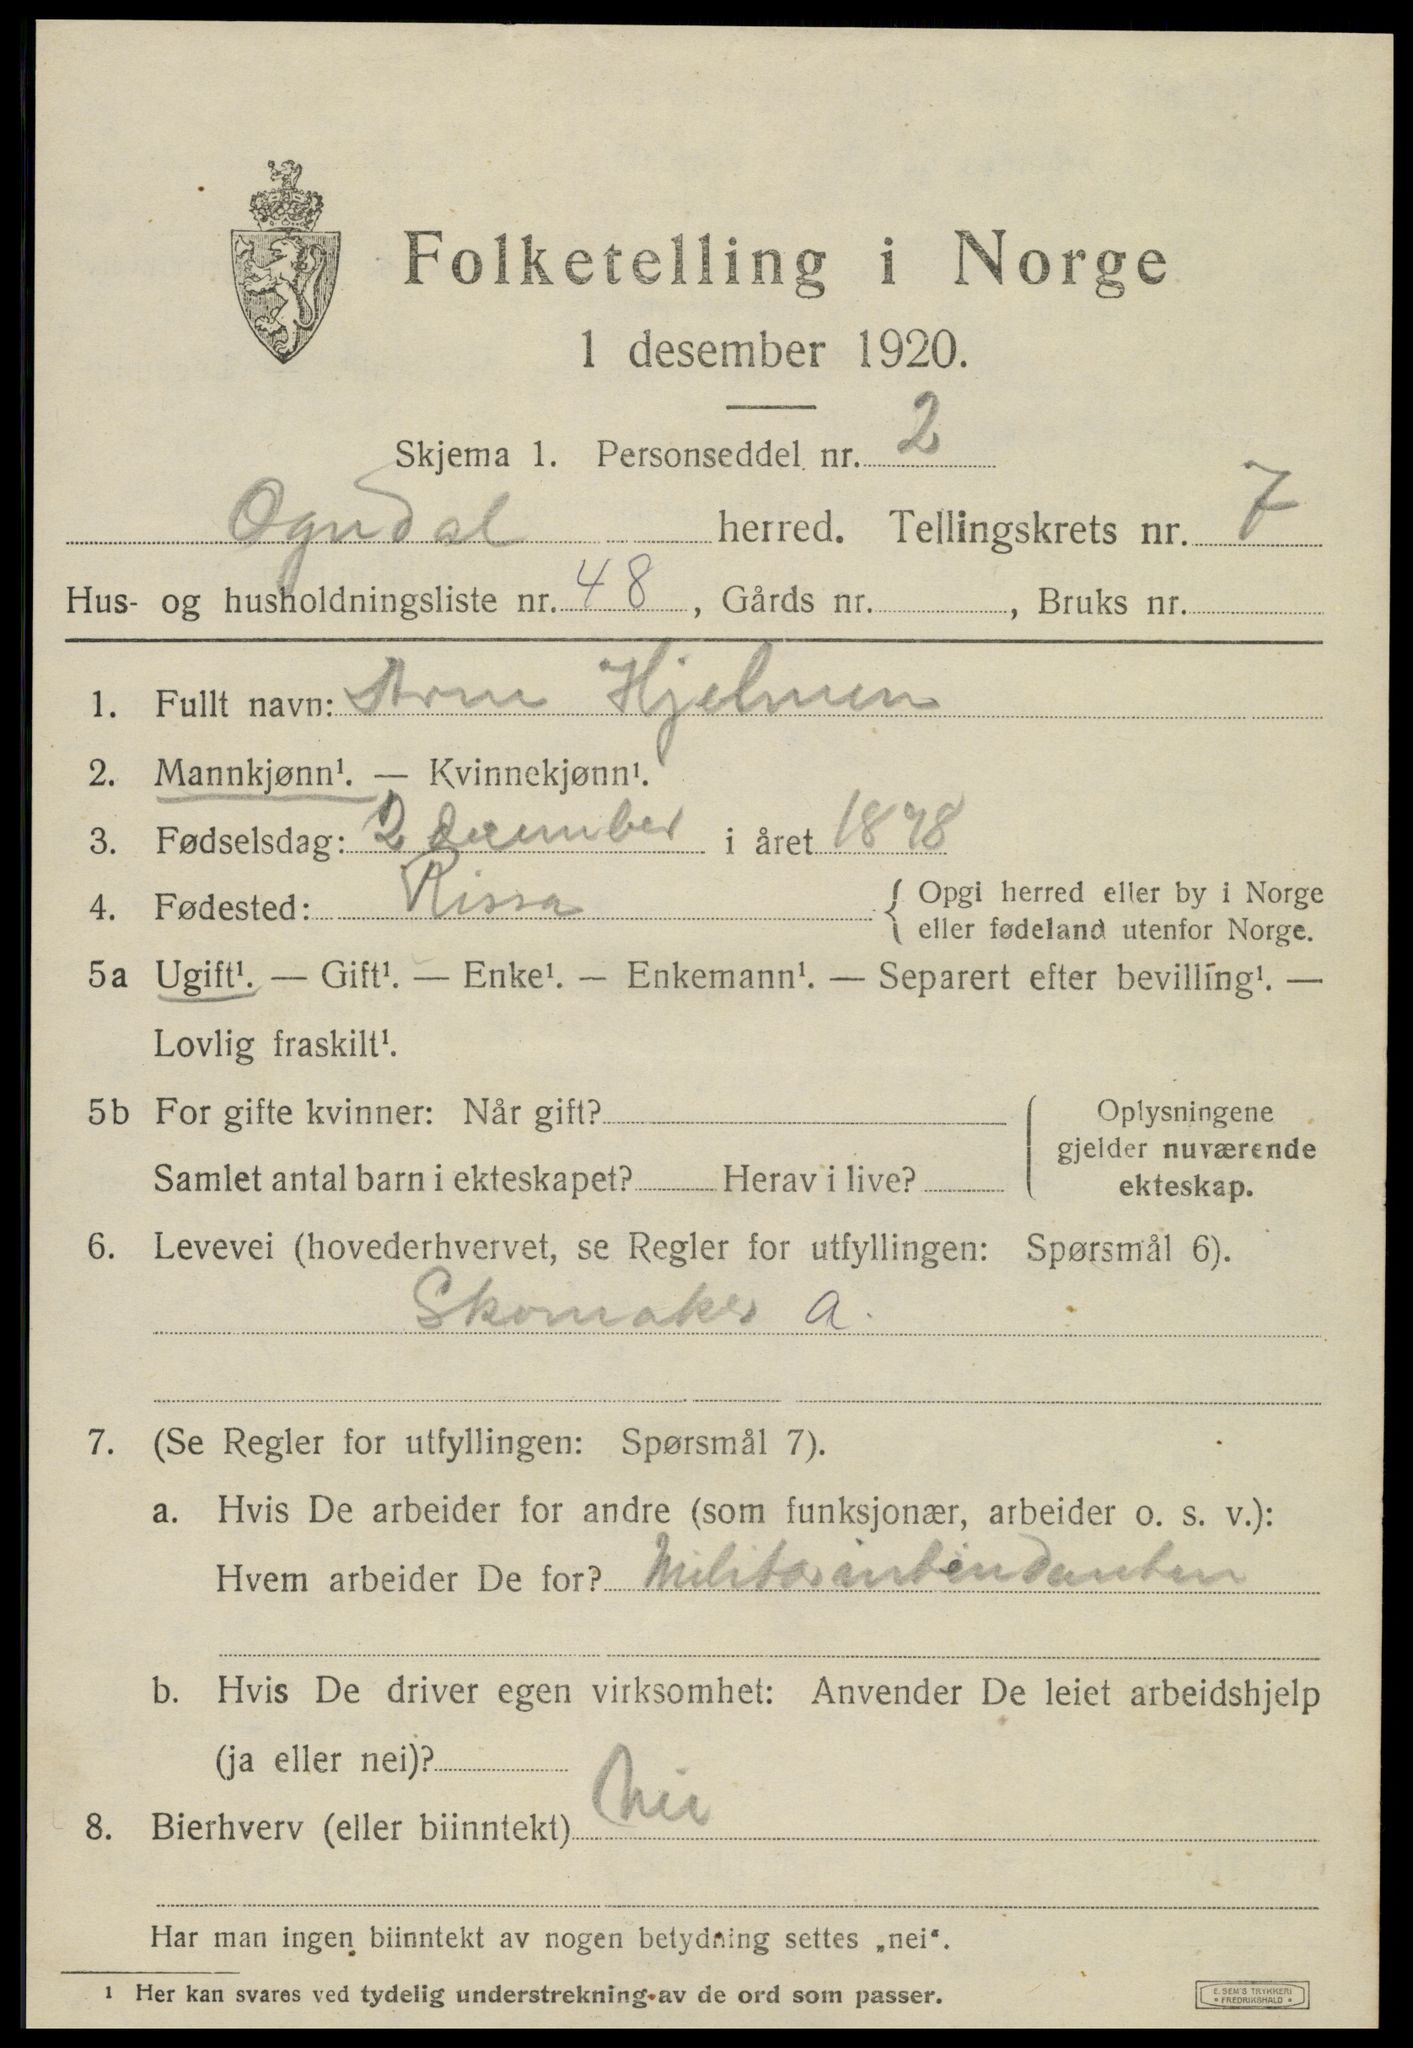 Folketelling i Norge
1 desember 1920.
Skjema 1. Personseddel nr. 2
Ogndal herred. Tellingskrets nr. 7
Hus- og husholdningsliste nr. 48, Gårds nr. , Bruks nr.
1. Fullt navn: Arne Hjelmen
2. Mannkjønn¹. — Kvinnekjønn¹.
3. Fødselsdag: 2 december i året 1898
4. Fødested: Rissa { Opgi herred eller by i Norge
eller fødeland utenfor Norge.
5a Ugift¹. — Gift¹. — Enke¹. — Enkemann¹. — Separert efter bevilling¹. —
Lovlig fraskilt¹.
5b For gifte kvinner: Når gift?
Samlet antal barn i ekteskapet? Herav i live?
Oplysningene
gjelder nuværende
ekteskap.
6. Levevei (hovederhvervet, se Regler for utfyllingen: Spørsmål 6).
Skomaker a.
7. (Se Regler for utfyllingen: Spørsmål 7).
a. Hvis De arbeider for andre (som funksjonær, arbeider o. s. v.):
Hvem arbeider De for? Militærintendanten
b. Hvis De driver egen virksomhet: Anvender De leiet arbeidshjelp
(ja eller nei)?
8. Bierhverv (eller biinntekt) Nei
Har man ingen biinntekt av nogen betydning settes „nei“.
¹ Her kan svares ved tydelig understrekning av de ord som passer.
E. SEM'S TRYKKERI
• FREDRIKSHALD •